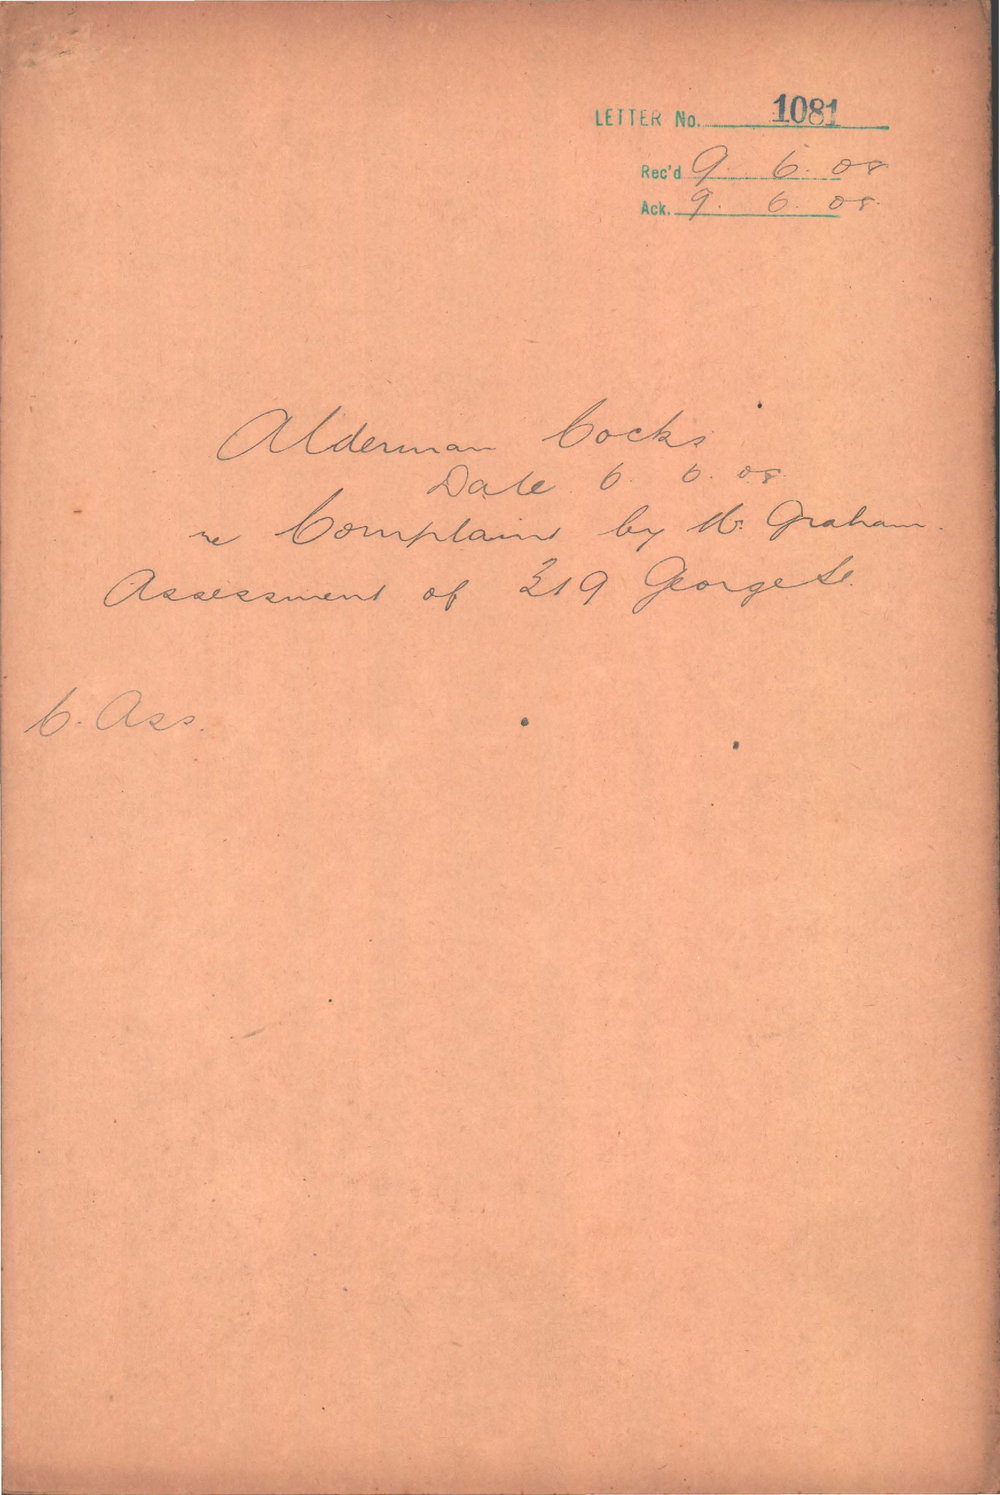 LETTER No. 1081
Rec'd 9. 6. 08
Ack. 9. 6. 08.
Alderman Cocks
Date 6. 6. 08
re Complaint by W. Graham.
Assessment of 319 George St.
C. Ass.